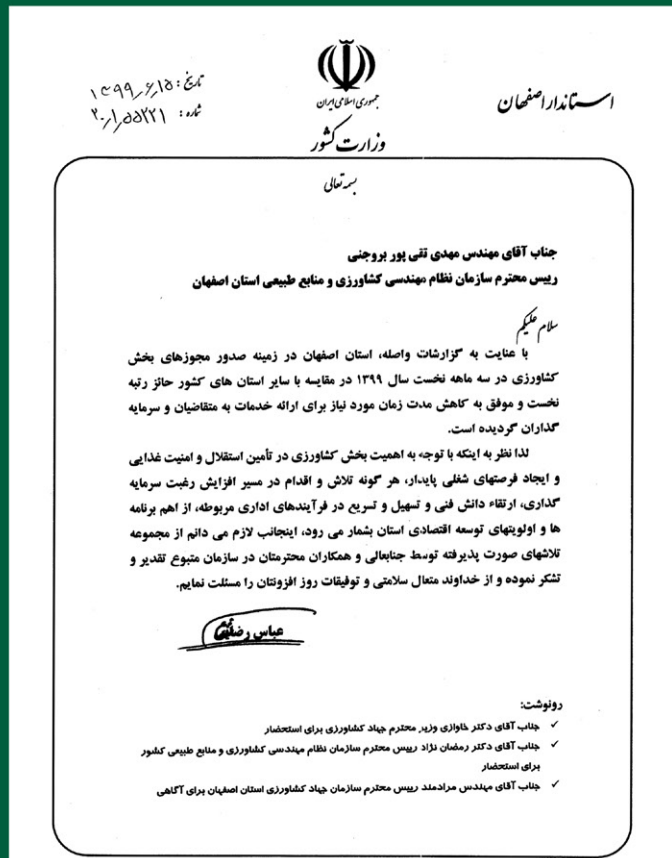 استاندار اصفهان
جمهوری اسلامی ایران
وزارت کشور
تاریخ: ۱۳۹۹٫۶٫۱۵
شماره: ۲۰٫۱٫۵۵۲۲۱
بسمه تعالی
جناب آقای مهندس مهدی تقی پور بروجنی
رییس محترم سازمان نظام مهندسی کشاورزی و منابع طبیعی استان اصفهان
سلام علیکم
با عنایت به گزارشات واصله، استان اصفهان در زمینه صدور مجوزهای بخش
کشاورزی در سه ماهه نخست سال ۱۳۹۹ در مقایسه با سایر استان های کشور حائز رتبه
نخست و موفق به کاهش مدت زمان مورد نیاز برای ارائه خدمات به متقاضیان و سرمایه
گذاران گردیده است.
لذا نظر به اینکه با توجه به اهمیت بخش کشاورزی در تأمین استقلال و امنیت غذایی
و ایجاد فرصتهای شغلی پایدار، هر گونه تلاش و اقدام در مسیر افزایش رغبت سرمایه
گذاری، ارتقاء دانش فنی و تسهیل و تسریع در فرآیندهای اداری مربوطه، از اهم برنامه
ها و اولویتهای توسعه اقتصادی استان بشمار می رود، اینجانب لازم می دانم از مجموعه
تلاشهای صورت پذیرفته توسط جنابعالی و همکاران محترمتان در سازمان متبوع تقدیر و
تشکر نموده و از خداوند متعال سلامتی و توفیقات روز افزونتان را مسئلت نمایم.
عباس رضایی
رونوشت:
✓ جناب آقای دکتر خاوازی وزیر محترم جهاد کشاورزی برای استحضار
✓ جناب آقای دکتر رمضان نژاد رییس محترم سازمان نظام مهندسی کشاورزی و منابع طبیعی کشور
برای استحضار
✓ جناب آقای مهندس مرادمند رییس محترم سازمان جهاد کشاورزی استان اصفهان برای آگاهی